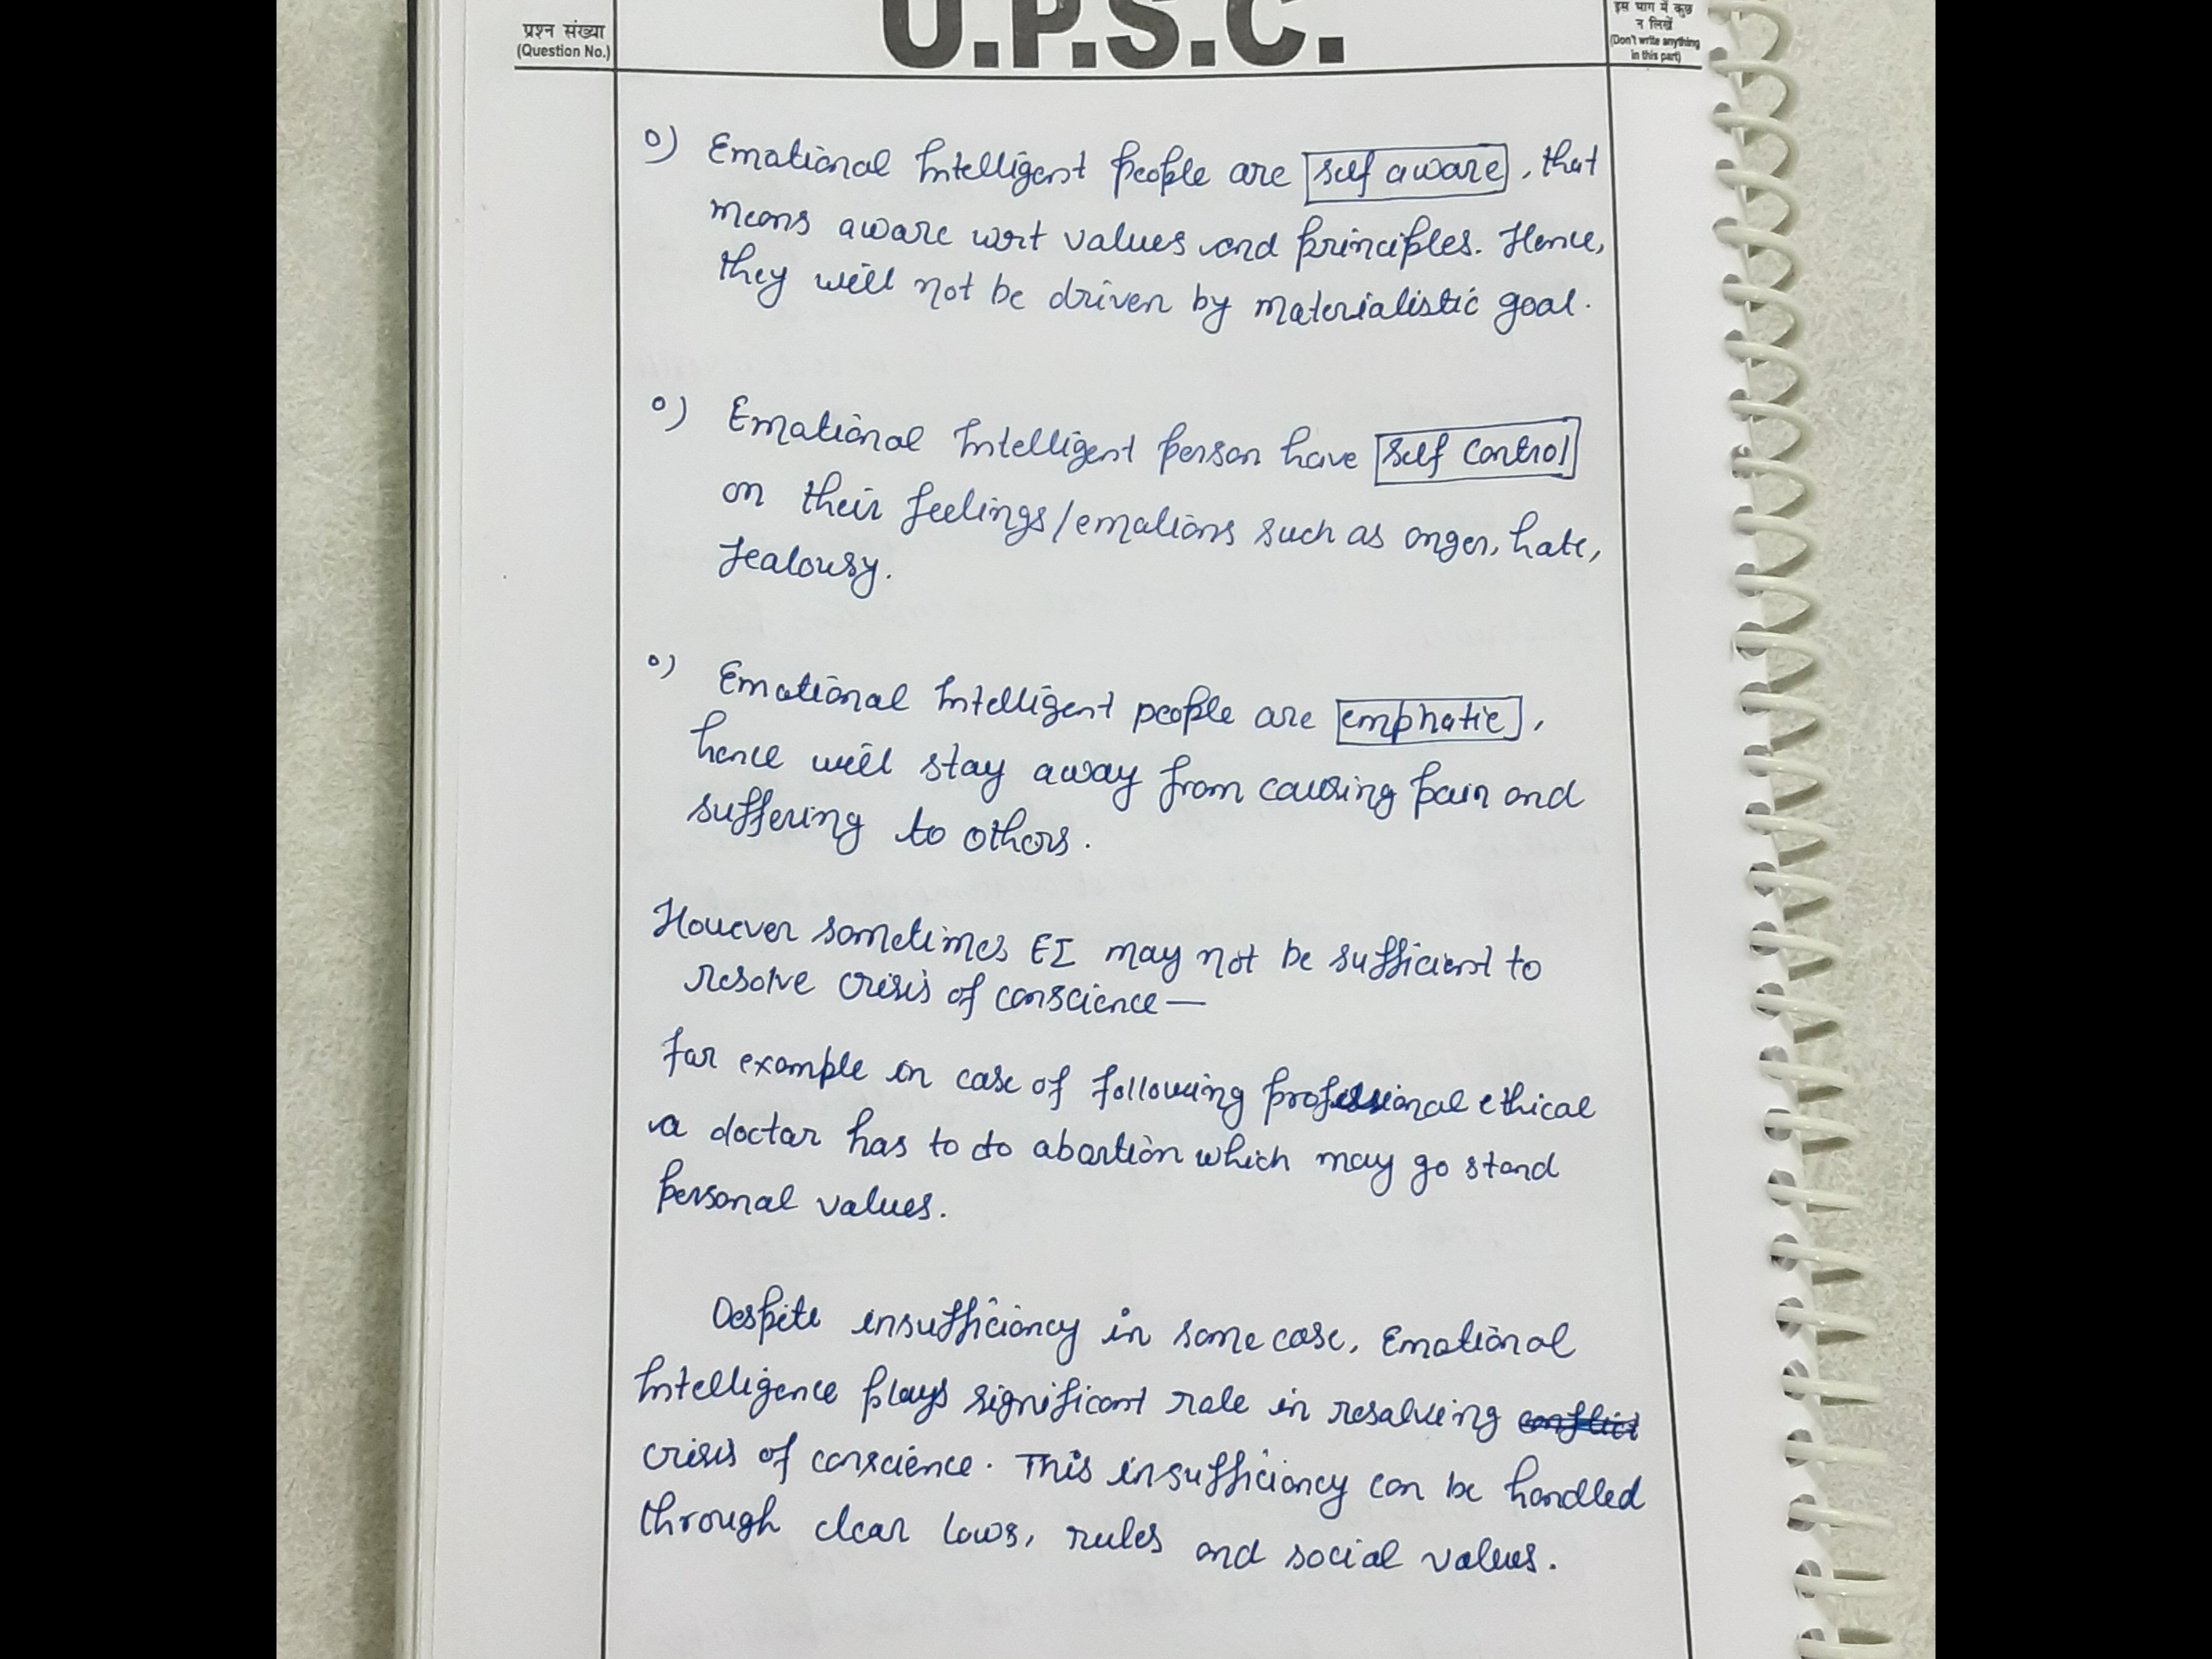 प्रश्न संख्या
(Question No.)
U.P.S.C.
इस भाग में कुछ
न लिखें
(Don't write anything
in this part)
o) Emotional Intelligent people are self aware, that
means aware wrt values and principles. Hence,
they will not be driven by materialistic goal.
o) Emotional Intelligent person have self control
on their feelings/emotions such as anger, hate,
Jealousy.
o) Emotional Intelligent people are emphatic,
hence will stay away from causing pain and
suffering to others.
However sometimes EI may not be sufficient to
resolve crisis of conscience—
for example in case of following professional ethical
a doctor has to do abortion which may go stand
personal values.
Despite insufficiency in some case, Emotional
Intelligence plays significant role in resolving conflict
crisis of conscience. This insufficiency can be handled
through clear laws, rules and social values.